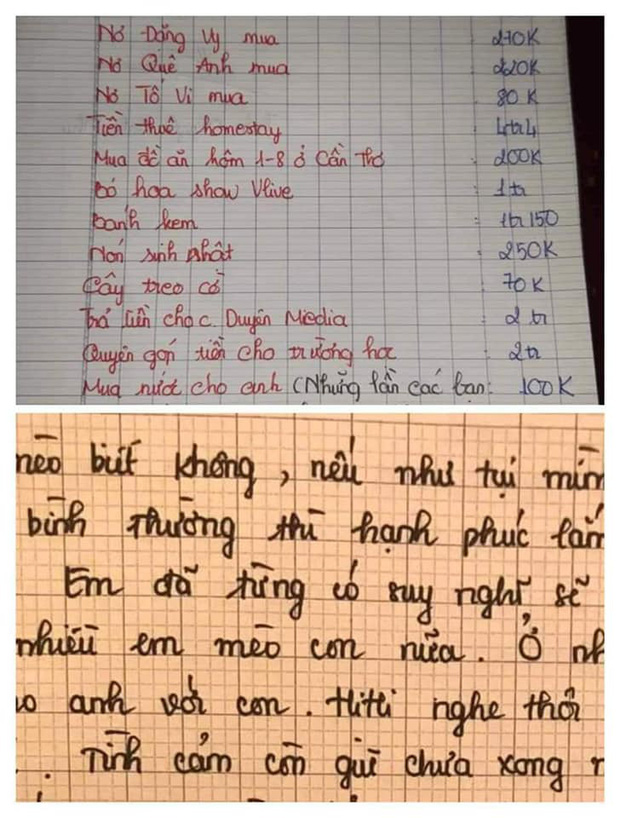 Nợ Đặng Vy mua : 270K
Nợ Quế Anh mua : 220K
Nợ Tố Vi mua : 80K
Tiền thuê homestay : 4tr4
Mua đồ ăn hôm 1-8 ở Cần Thơ : 200K
bó hoa show Vlive : 1tr
bánh kem : 1tr150
Nón sinh nhật : 250K
Cây treo cờ : 70K
Trả tiền cho c. Duyên Media : 2 tr
Quyên góp tiền cho trường học : 2tr
Mua nước cho anh (Những lần các bạn : 100K
mèo biết không, nếu như tụi mìn
bình thường thì hạnh phúc lắm
Em đã từng có suy nghĩ sẽ
nhiều em mèo con nữa. Ở nh
anh với con. HiHi nghe thôi
. Tình cảm còn gùi chưa xong